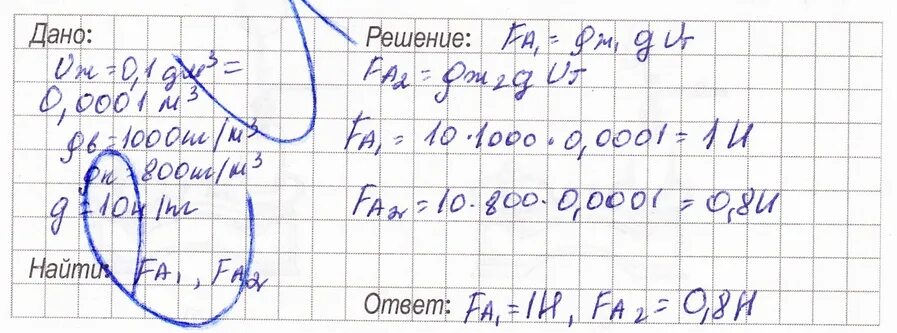 Дано:
Vт = 0,1 дм³ =
0,0001 м³
ρв = 1000кг/м³
ρк = 800кг/м³
g = 10Н/кг
Найти: FA₁, FA₂
Решение: FA₁ = ρж₁ g Vт
FA₂ = ρж₂ g Vт
FA₁ = 10·1000·0,0001 = 1Н
FA₂ = 10·800·0,0001 = 0,8Н
Ответ: FA₁ = 1Н, FA₂ = 0,8Н